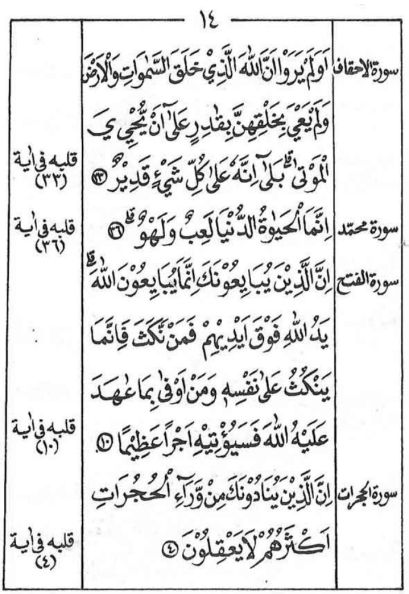 ١٤
سورة الاحقاف اَوَلَمْ يَرَوْا اَنَّ اللهَ الَّذِيْ خَلَقَ السَّمٰوَاتِ وَالْاَرْضَ
وَلَمْ يَعْيَ بِخَلْقِهِنَّ بِقٰدِرٍ عَلٰٓى اَنْ يُّحْيِيَ ي
الْمَوْتٰىۗ بَلٰٓى اِنَّهٗ عَلٰى كُلِّ شَيْءٍ قَدِيْرٌ ٣٣ قلبه فى اية (٣٣)
سورة محمّد اِنَّمَا الْحَيٰوةُ الدُّنْيَا لَعِبٌ وَلَهْوٌۗ ٣٦ قلبه فى اية (٣٦)
سورة الفتح اِنَّ الَّذِيْنَ يُبَايِعُوْنَكَ اِنَّمَا يُبَايِعُوْنَ اللهَۗ
يَدُ اللهِ فَوْقَ اَيْدِيْهِمْ فَمَنْ نَّكَثَ فَاِنَّمَا
يَنْكُثُ عَلٰى نَفْسِهٖ وَمَنْ اَوْفٰى بِمَا عٰهَدَ
عَلَيْهُ اللهَ فَسَيُؤْتِيْهِ اَجْرًا عَظِيْمًا ١٠ قلبه فى اية (١٠)
سورة الحجرات اِنَّ الَّذِيْنَ يُنَادُوْنَكَ مِنْ وَّرَآءِ الْحُجُرَاتِ
اَكْثَرُهُمْ لَا يَعْقِلُوْنَ ٤ قلبه فى اية (٤)